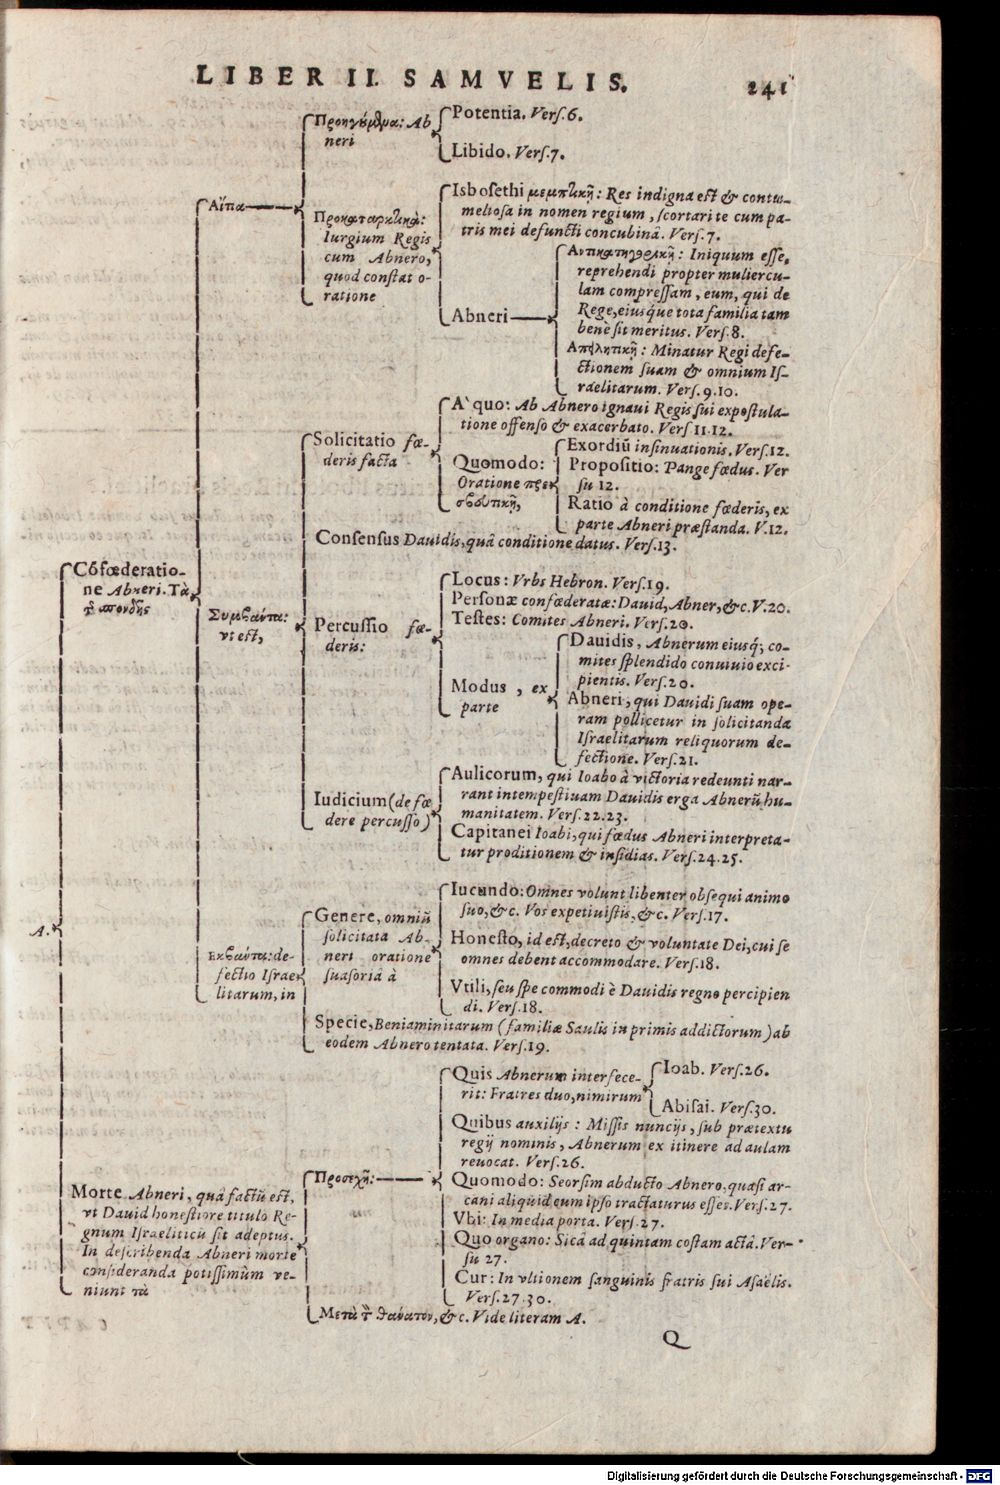 LIBER II. SAMVELIS.
241
Προηγύμενα: Ab
neri
Potentia. Vers.6.
Libido. Vers.7.
Αἴτια
Προκαταρκτικὰ:
Iurgium Regis
cum Abnero,
quod constat o-
ratione
Isbosethi μεμπτικῇ: Res indigna est & contu-
meliosa in nomen regium, scortari te cum pa-
tris mei defuncti concubinâ. Vers.7.
Abneri
Αντικατηγορικῇ: Iniquum esse,
reprehendi propter muliercu-
lam compressam, eum, qui de
Rege, eiusque tota familia tam
benè sit meritus. Vers.8.
Απειλητικῇ: Minatur Regi defe-
ctionem suam & omnium Is-
raelitarum. Vers.9.10.
Cōfœderatio-
ne Abneri. Τὰ
τ͂ σπονδῆς
Συμβαίντα:
vt est,
Solicitatio fœ-
deris facta
A` quo: Ab Abnero ignaui Regis sui expostula-
tione offenso & exacerbato. Vers 11.12.
Quomodo:
Oratione πρεσ
σβουτικῇ,
Exordiū insinuationis. Vers.12.
Propositio: Pange fœdus. Ver
su 12.
Ratio à conditione fœderis, ex
parte Abneri præstanda. V.12.
Consensus Dauidis, quâ conditione datus. Vers.13.
Percussio fœ-
deris:
Locus: Vrbs Hebron. Vers.19.
Personæ confœderatæ: Dauid, Abner, &c. V.20.
Testes: Comites Abneri. Vers.20.
Modus, ex
parte
Dauidis, Abnerum eiusq́; co-
mites splendido conuiuio exci-
pientis. Vers.20.
Abneri, qui Dauidi suam ope-
ram pollicetur in solicitanda
Israelitarum reliquorum de-
fectione. Vers.21.
Iudicium (de fœ
dere percusso)
Aulicorum, qui Ioabo à victoria redeunti nar-
rant intempestiuam Dauidis erga Abnerū hu-
manitatem. Vers.22.23.
Capitanei Ioabi, qui fœdus Abneri interpreta-
tur proditionem & insidias. Vers.24.25.
A.
Εκβαίντα: de-
fectio Israe
litarum, in
Genere, omniū
solicitata Ab-
neri oratione
suasoria à
Iucundo: Omnes volunt libenter obsequi animo
suo, &c. Vos expetiuistis, &c. Vers.17.
Honesto, id est, decreto & voluntate Dei, cui se
omnes debent accommodare. Vers.18.
Vtili, seu spe commodi è Dauidis regno percipien
di. Vers.18.
Specie, Beniaminitarum (familiæ Saulis in primis addictorum) ab
eodem Abnero tentata. Vers.19.
Morte Abneri, quâ factū est,
vt Dauid honestiore titulo Re-
gnum Israeliticū sit adeptus.
In describenda Abneri morte
consideranda potissimùm ve-
niunt τὰ
Προσεχῆ:
Quis Abnerum interfece-
rit: Fratres duo, nimirum
Ioab. Vers.26.
Abisai. Vers.30.
Quibus auxilijs: Missis nuncijs, sub prætextu
regij nominis, Abnerum ex itinere ad aulam
reuocat. Vers.26.
Quomodo: Seorsim abducto Abnero, quasi ar-
cani aliquid cum ipso tractaturus esset. Vers.27.
Vbi: In media porta. Vers.27.
Quo organo: Sicâ ad quintam costam actâ. Ver-
su 27.
Cur: In vltionem sanguinis fratris sui Asaelis.
Vers.27.30.
Μετὰ τ͂ θάνατον, &c. Vide literam A.
Q
Digitalisierung gefördert durch die Deutsche Forschungsgemeinschaft - DFG